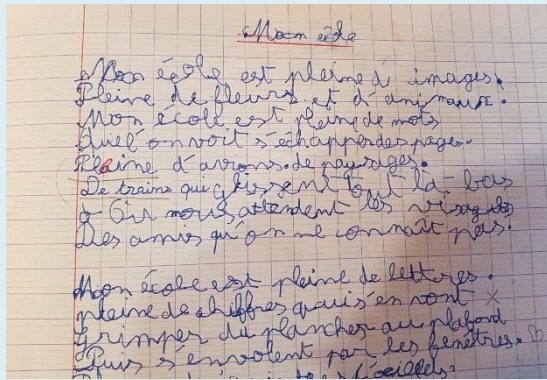 Mon école
Mon école est pleine d'images.
Pleine de fleurs et d'animaux.
Mon école est pleine de mots
Que l'on voit s'échapper des pages.
Pleine d'avions. de paysages.
De trains qui glissent tout là-bas
Où nous attendent les visages
Des amis qu'on ne connaît pas.
Mon école est pleine de lettres.
pleine de chiffres qui s'en vont
grimper du plancher au plafond
Puis s'envolent par les fenêtres.